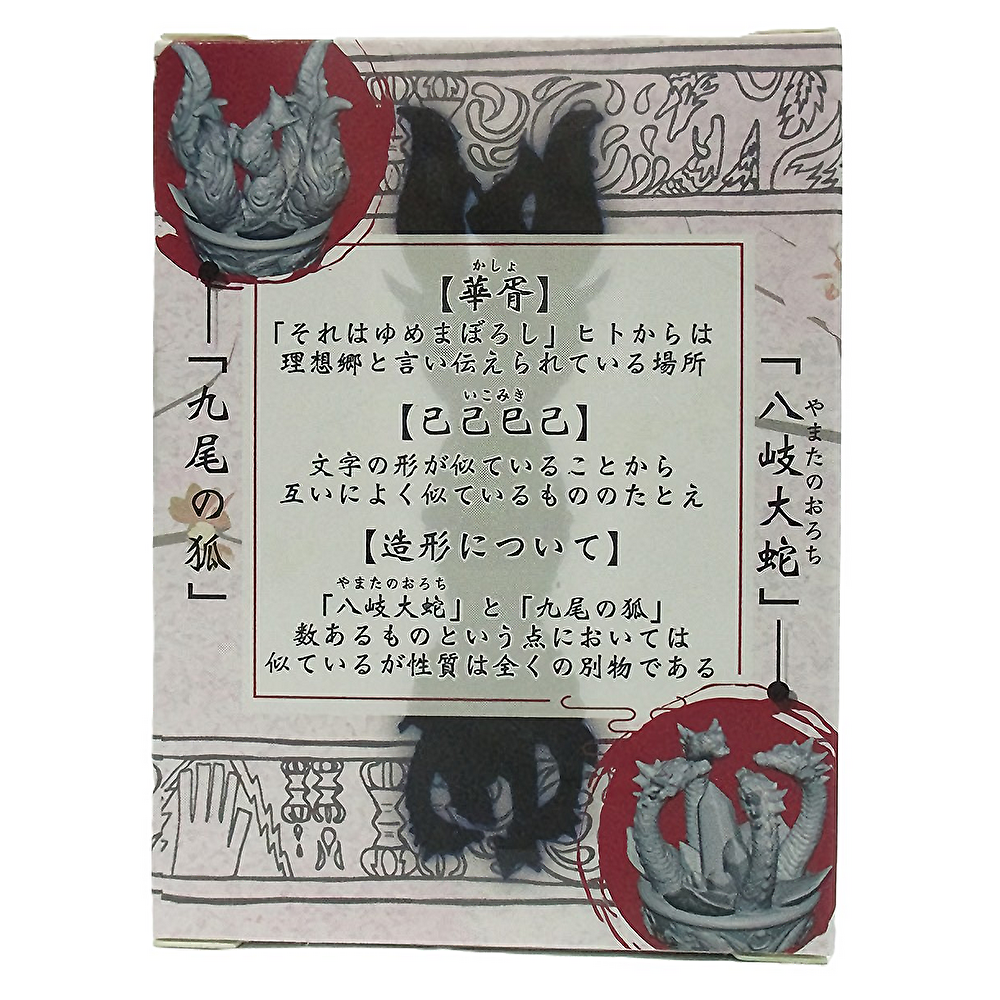 「九尾の狐」
かしょ
【華胥】
「それはゆめまぼろし」ヒトからは
理想郷と言い伝えられている場所
いこみき
【已己巳己】
文字の形が似ていることから
互いによく似ているもののたとえ
【造形について】
やまたのおろち
「八岐大蛇」と「九尾の狐」
数あるものという点においては
似ているが性質は全くの別物である
やまたのおろち
「八岐大蛇」